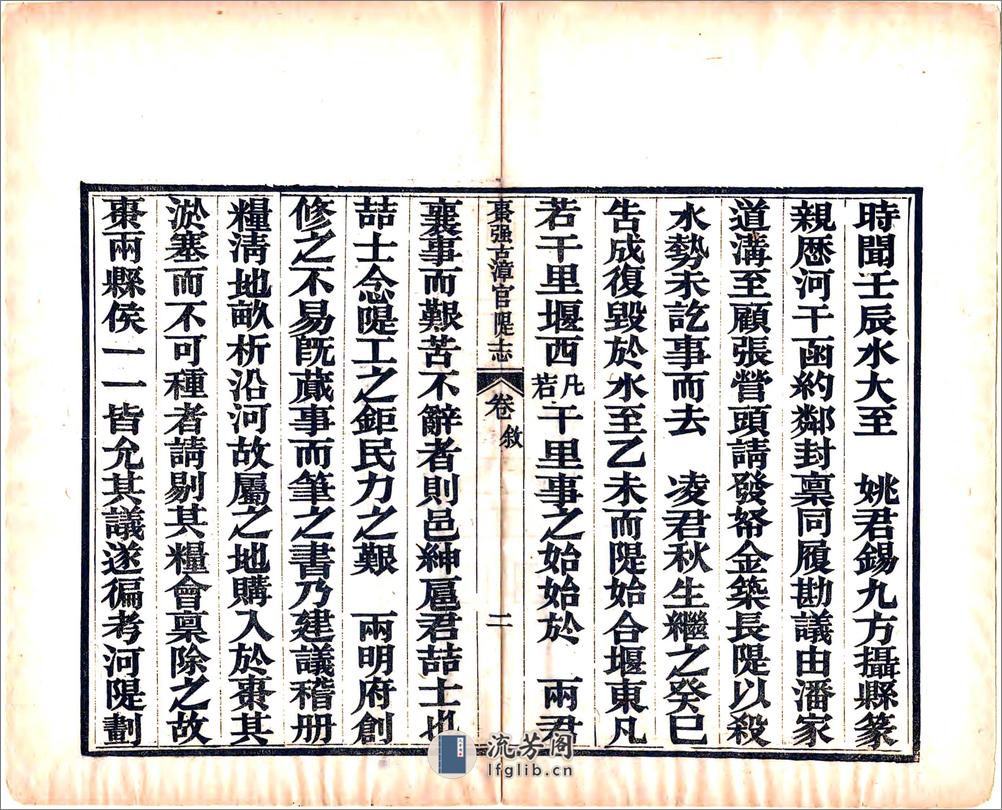 時聞壬辰水大至　姚君錫九方攝縣篆
親歷河干函約鄰封稟同履勘議由潘家
道溝至顧張營頭請發帑金築長隄以殺
水勢未訖事而去　凌君秋生繼之癸巳
告成復毀於水至乙未而隄始合堰東凡
若干里堰西凡若干里事之始始於　兩君
棗强古漳官隄志　卷敘　二
襄事而艱苦不辭者則邑紳扈君喆士也
喆士念隄工之鉅民力之艱　兩明府創
修之不易旣蕆事而筆之書乃建議稽册
糧淸地畝析沿河故屬之地購入於棗其
淤塞而不可種者請剔其糧會稟除之故
棗兩縣侯一一皆允其議遂徧考河隄劃
流芳阁
lfglib.cn